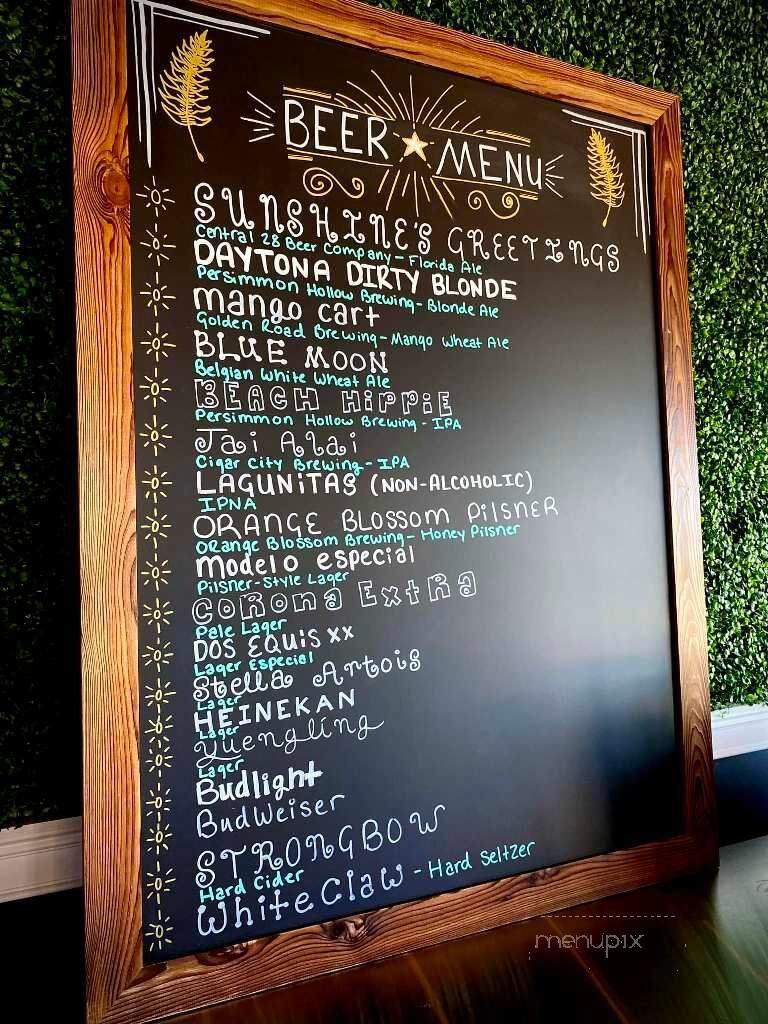 BEER ★ MENU
SUNSHINE'S GREETINGS
Central 28 Beer Company - Florida Ale
DAYTONA DIRTY BLONDE
Persimmon Hollow Brewing - Blonde Ale
mango cart
Golden Road Brewing - Mango Wheat Ale
BLUE MOON
Belgian White Wheat Ale
BEACH HiPPiE
Persimmon Hollow Brewing - IPA
Jai Alai
Cigar City Brewing - IPA
LAGUNiTAS (NON-ALCOHOLIC)
IPNA
ORANGE BLOSSOM PilSNER
Orange Blossom Brewing - Honey Pilsner
Modelo especial
Pilsner-Style Lager
CoRona ExtRa
Pale Lager
DOS EQUiS XX
Lager Especial
Stella Artois
Lager
HEINEKAN
Lager
Yuengling
Lager
Budlight
BudWeiser
STRONGBOW
Hard Cider
WhiteClaw - Hard Seltzer
menupix